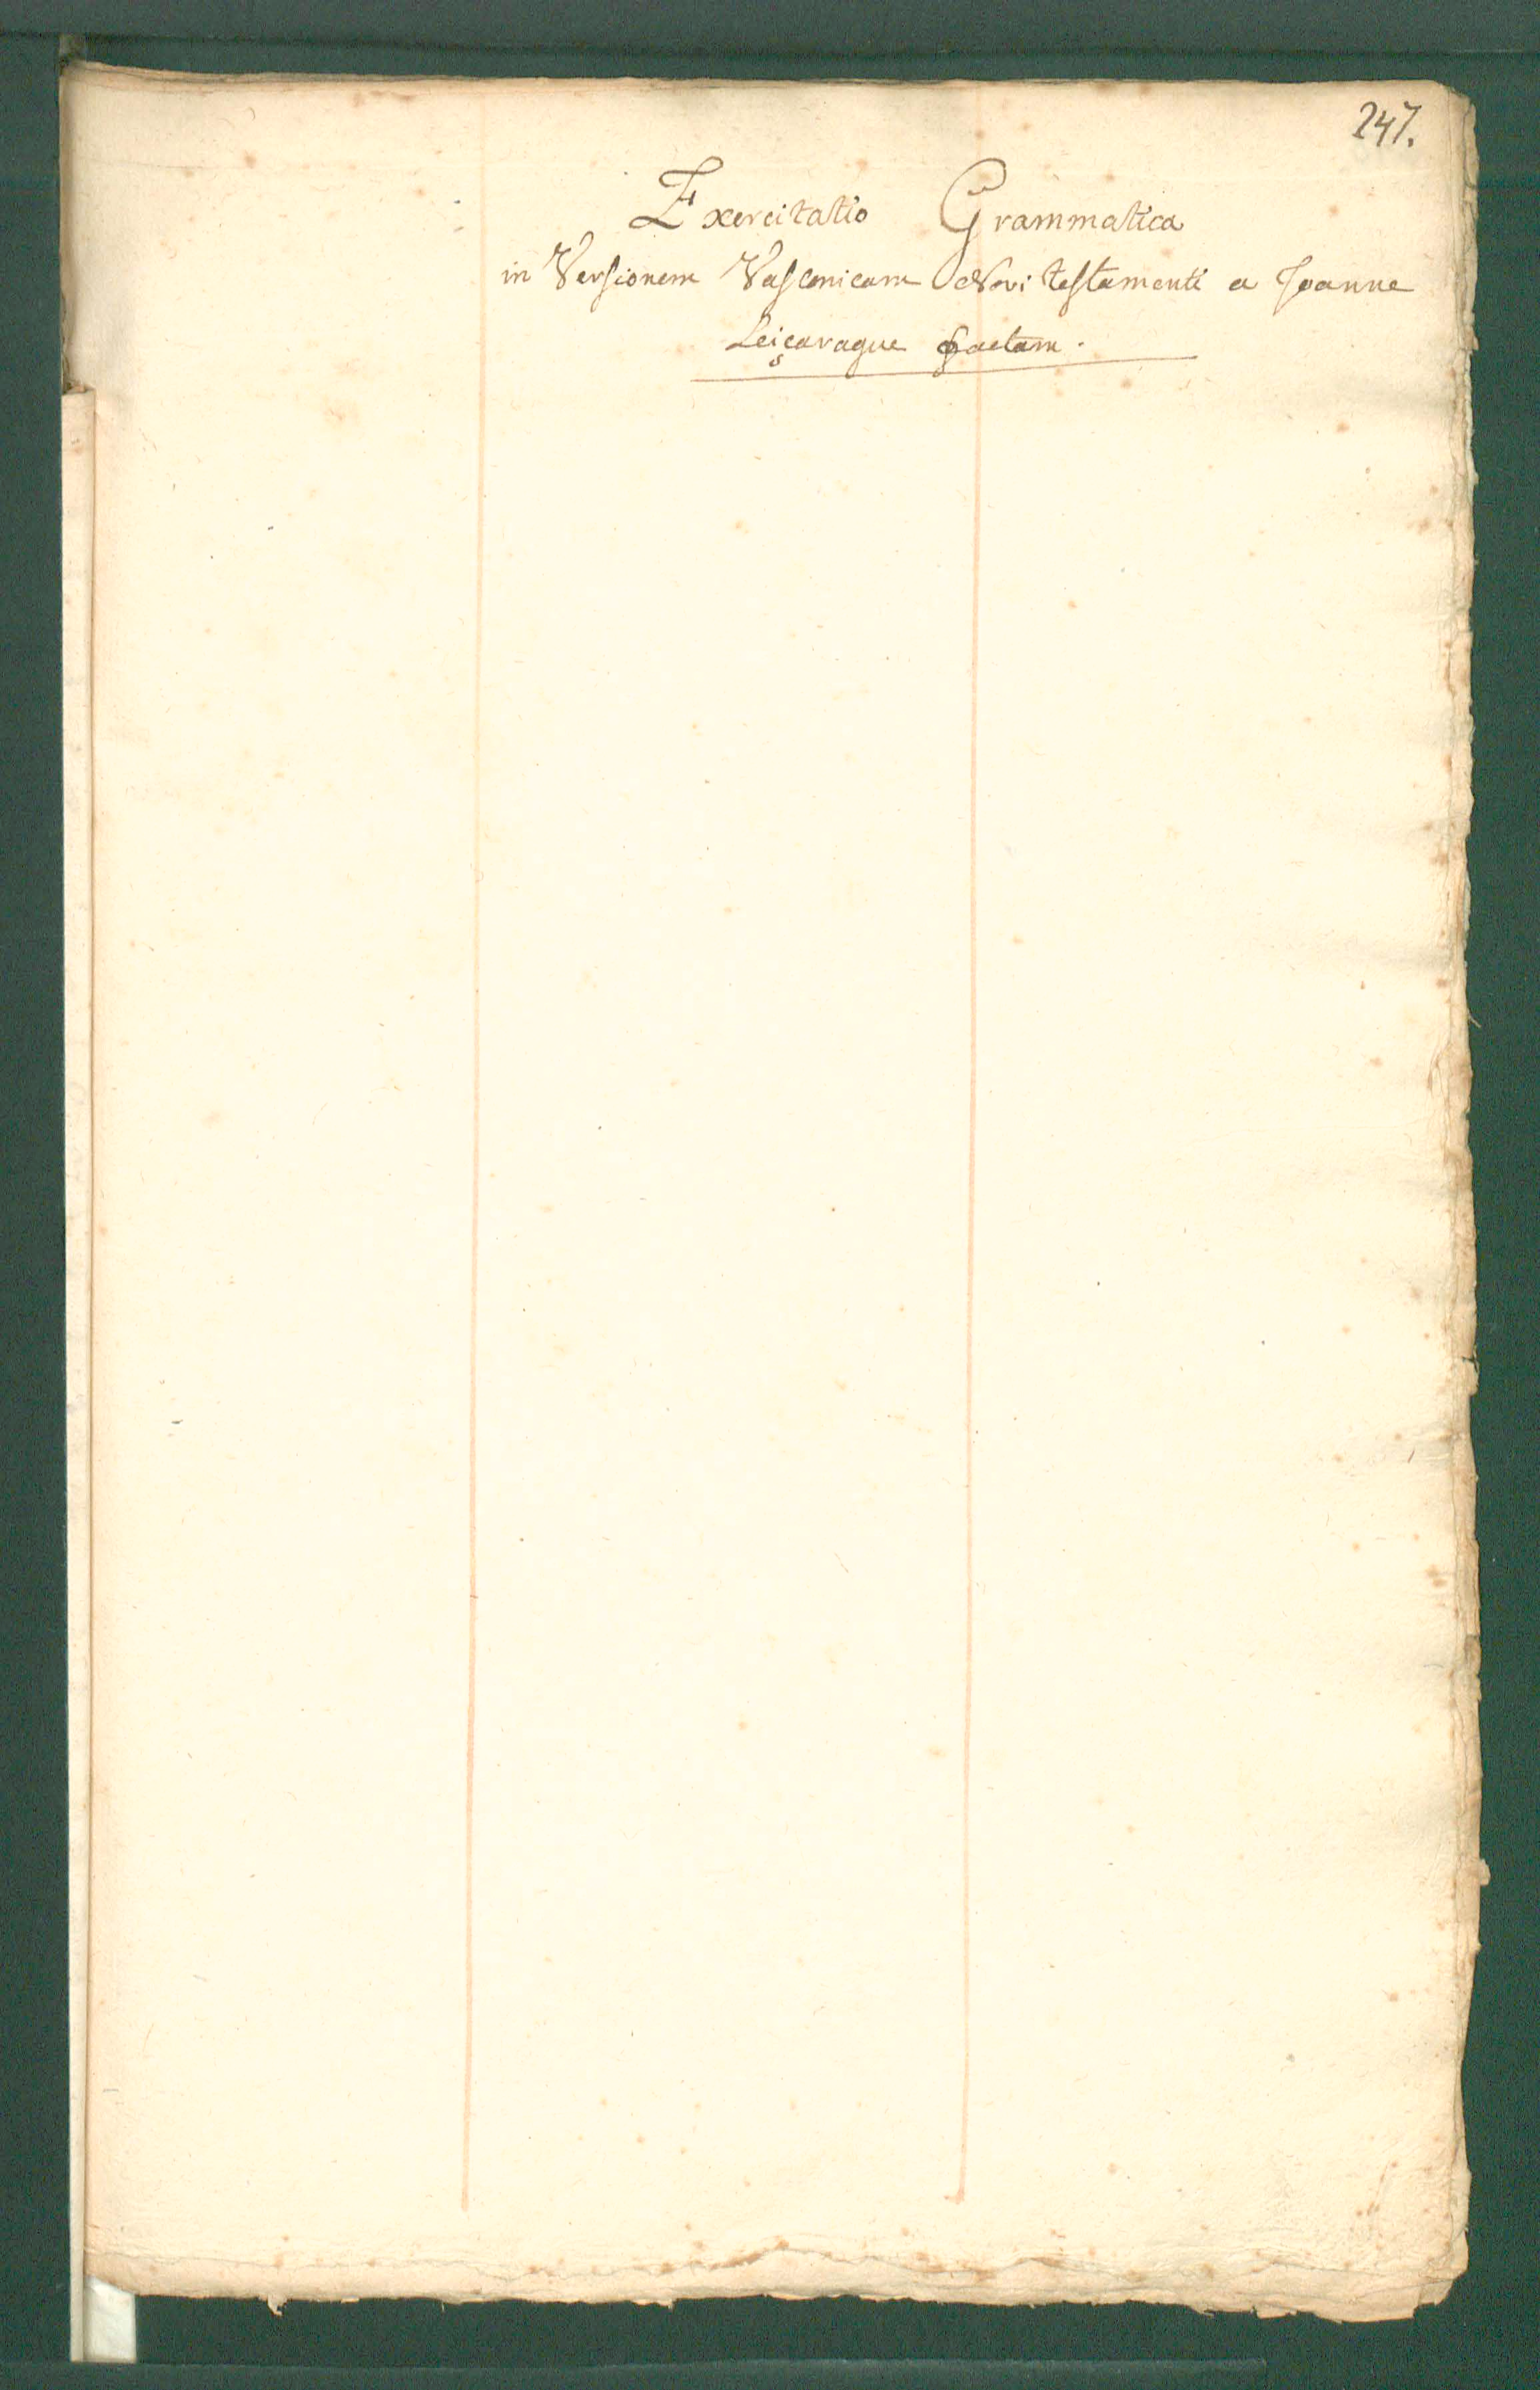 247.
Exercitatio Grammatica
in Versionem Vasconicam Novi testamenti a Joanne
Leiçarague factam.